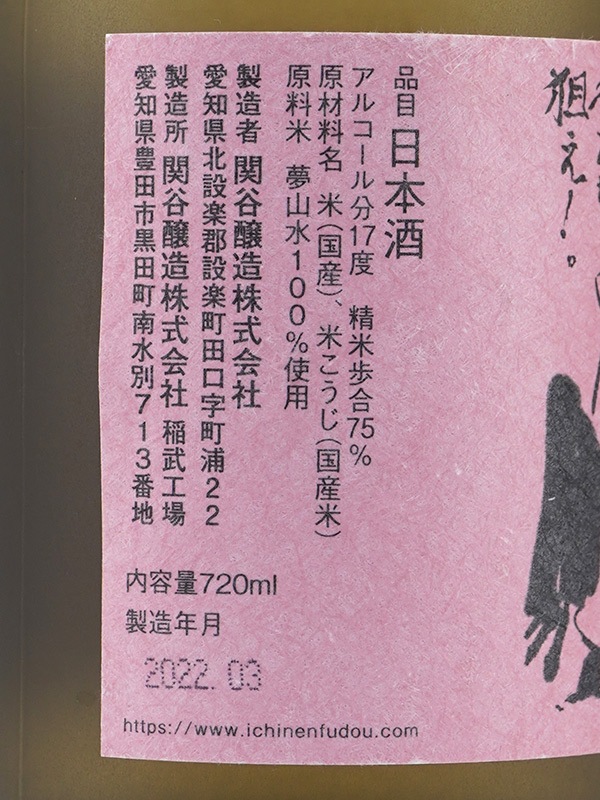 狙え!。
品目 日本酒
アルコール分17度 精米歩合75%
原材料名 米(国産)、米こうじ(国産米)
原料米 夢山水100%使用
製造者 関谷醸造株式会社
愛知県北設楽郡設楽町田口字町浦22
製造所 関谷醸造株式会社 稲武工場
愛知県豊田市黒田町南水別713番地
内容量720ml
製造年月
2022.03
https://www.ichinenfudou.com